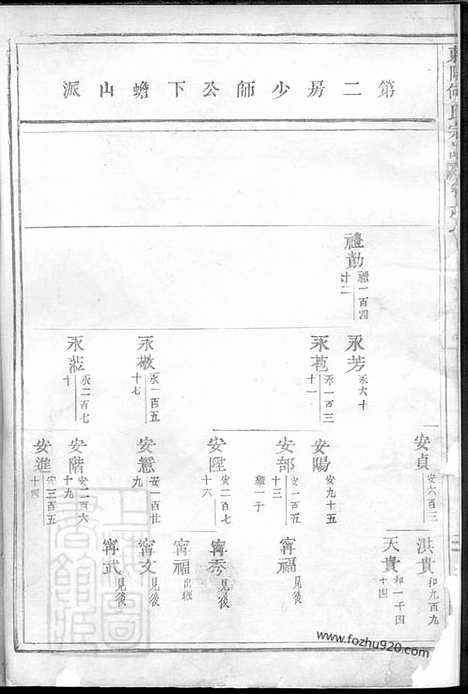 第二房少師公下蟾山派
禮勣
禮一百四
十二
永芳
永六十
永苞
永一百三
十一
永檄
永一百五
十七
永
永二百七
十
安貞
安六百三
安陽
安九十五
安部
安一百六
十三
繼一子
安陞
安二百七
十六
安慧
安一百廿
九
安階
安二百六
十九
安進
安三百五
十四
洪貴
和九百九
天貴
和一千四
十四
甯福
見後
甯秀
見後
甯福
出繼
甯文
見後
甯武
見後
www.fozhu920.com